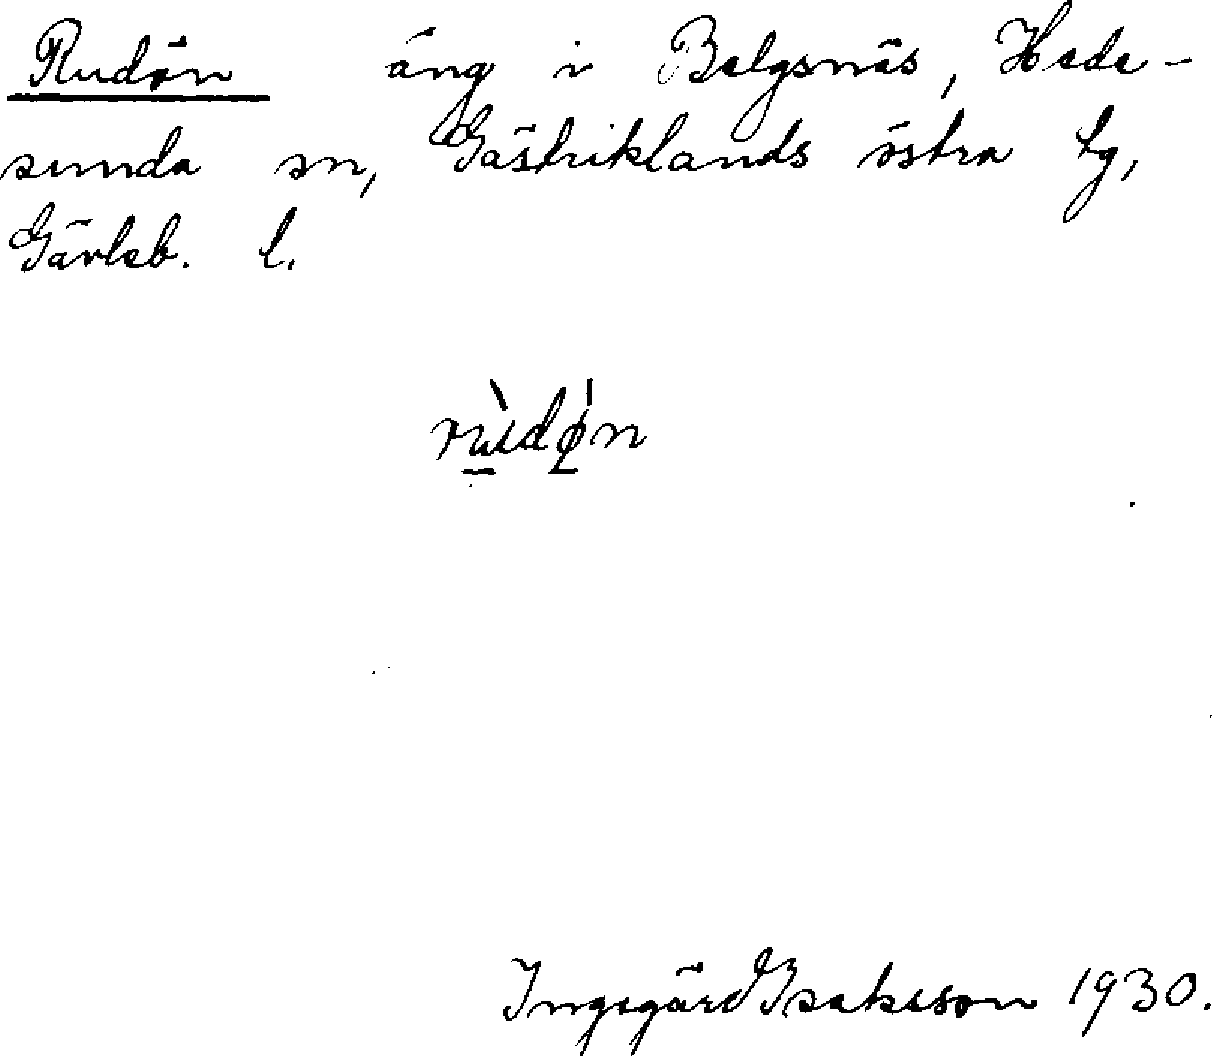 Rudön äng i Bälgsnäs, Hede-
sunda sn, Gästriklands östra tg,
Gävleb. l.
rùdǿn
Ingegärd Isaksson 1930.